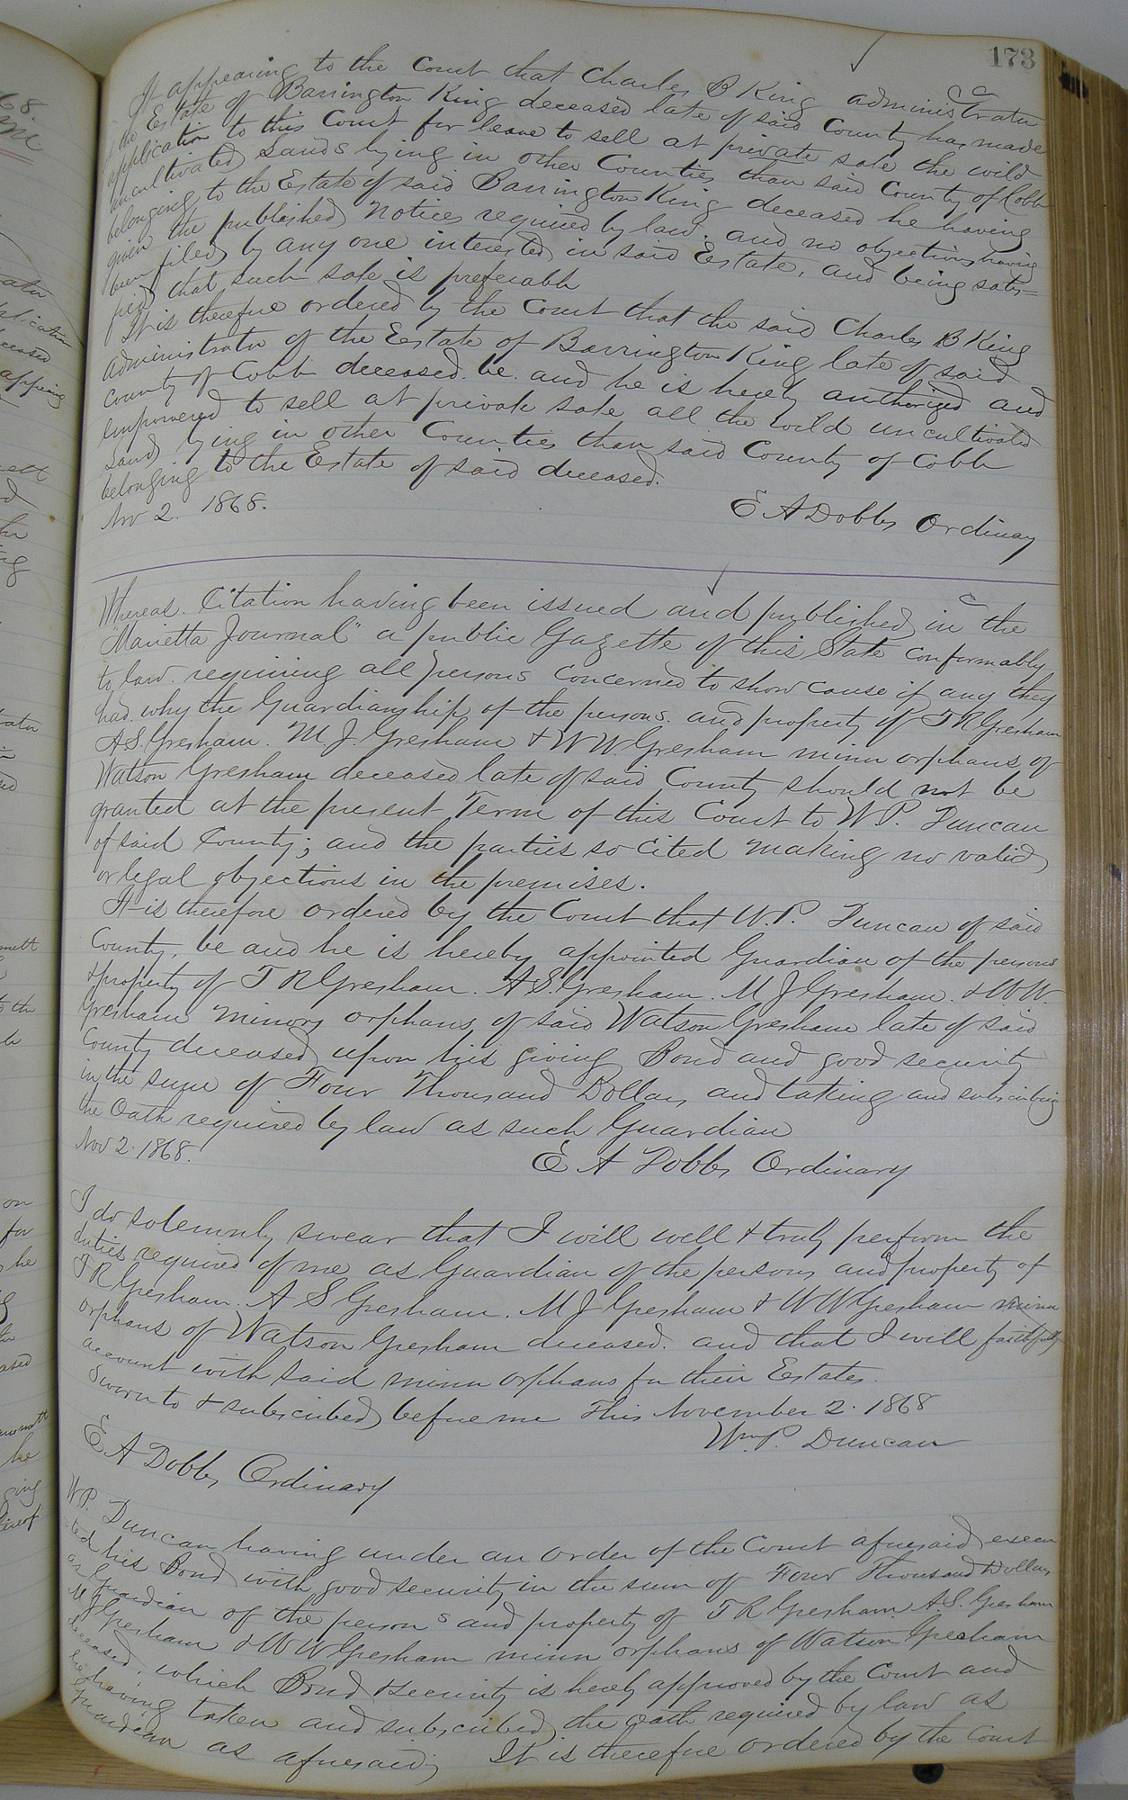 173
It appearing to the Court that Charles B King administrator
of the Estate of Barrington King deceased late of said County has made
application to this Court for leave to sell at private sale the wild
uncultivated Lands lying in other Counties than said County of Cobb
belonging to the Estate of said Barrington King deceased he having
given the published notices required by law. and no objections having
been filed by any one interested in said Estate, and being satis=
fied that such sale is preferable
It is therefore ordered by the Court that the said Charles B King
administrator of the Estate of Barrington King late of said
County of Cobb deceased. be and he is hereby authorized and
empowered to sell at private sale all the wild uncultivated
Land lying in other Counties than said County of Cobb
belonging to the Estate of said deceased.
Nov 2. 1868.
E A Dobbs Ordinary
Whereas. Citation having been issued and published in "the
Marietta Journal" a public Gazette of this State conformably
to law. requiring all persons concerned to show cause if any they
had. why the Guardianship of the persons and property of T R Gresham
A S. Gresham. M J. Gresham & W W Gresham minor orphans of
Watson Gresham deceased late of said County should not be
granted at the present Term of this Court to W P. Duncan
of said County; and the parties so cited making no valid
or legal objections in the premises.
It is therefore ordered by the Court that W. P. Duncan of said
County, be and he is hereby appointed Guardian of the persons
& property of T R Gresham. A S. Gresham. M J Gresham. & W W.
Gresham minors orphans of said Watson Gresham late of said
County deceased upon his giving Bond and good security
in the sum of Four Thousand Dollars and taking and subscribing
the Oath required by law as such Guardian
Nov 2. 1868.
E A Dobbs Ordinary
I do solemnly swear that I will well & truly perform the
duties required of me as Guardian of the persons and property of
T R Gresham. A S Gresham. M J Gresham & W W Gresham minor
orphans of Watson Gresham deceased. and that I will faithfully
account with said minor orphans for their Estates.
Sworn to & subscribed before me This November 2. 1868
Wm P. Duncan
E A Dobbs Ordinary
W P. Duncan having under an order of the Court aforesaid execu
ted his Bond with good security in the sum of Four Thousand Dollars
as Guardian of the persons and property of T R Gresham A. S. Gresham
M J Gresham & W W Gresham minor orphans of Watson Gresham
deceased. which Bond & security is hereby approved by the Court and
he having taken and subscribed the oath required by law as
Guardian as aforesaid; It is therefore ordered by the Court